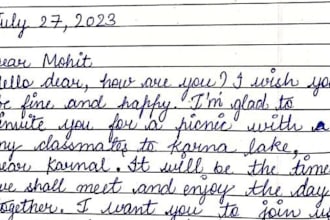 July 27, 2023
Dear Mohit
Hello dear, how are you? I wish you
be fine and happy. I'm glad to
invite you for a picnic with a
my classmates to karna lake,
near Karnal. It will be the time
we shall meet and enjoy the day
together. I want you to join us